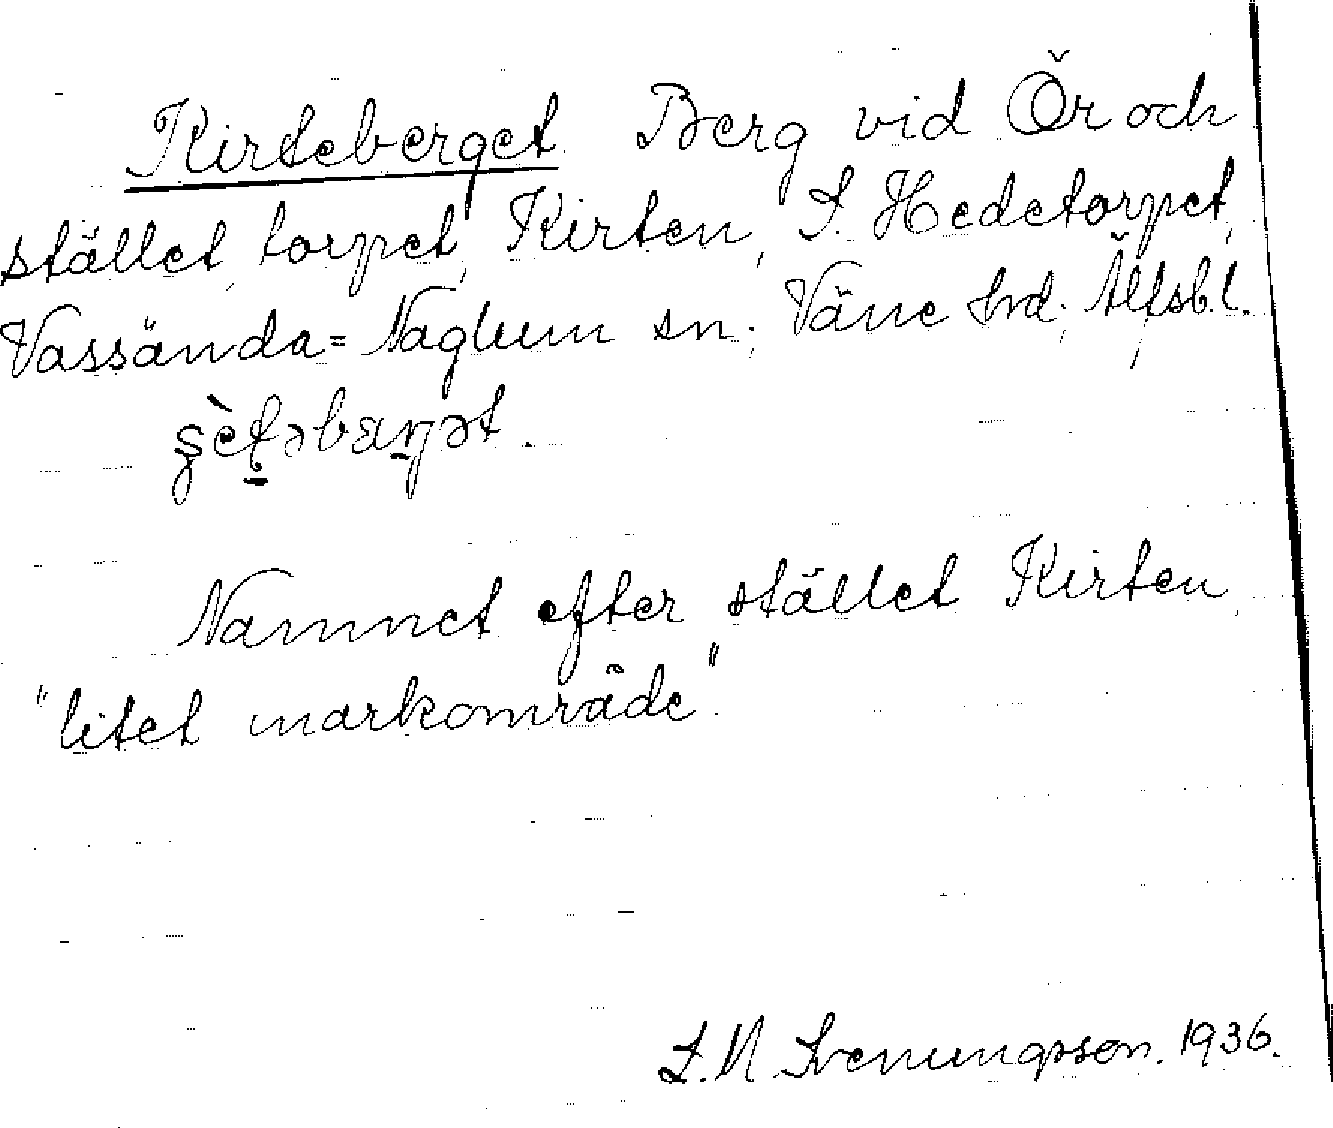 Kirteberget. Berg vid Ör och
stället, torpet, Kirten, S. Hedetorpet,
Vassända=Naglum sn; Väne hrd; Älfsb.l.
Namnet efter stället Kirten,
"litet markområde".
S. M. Svenungsson. 1936.